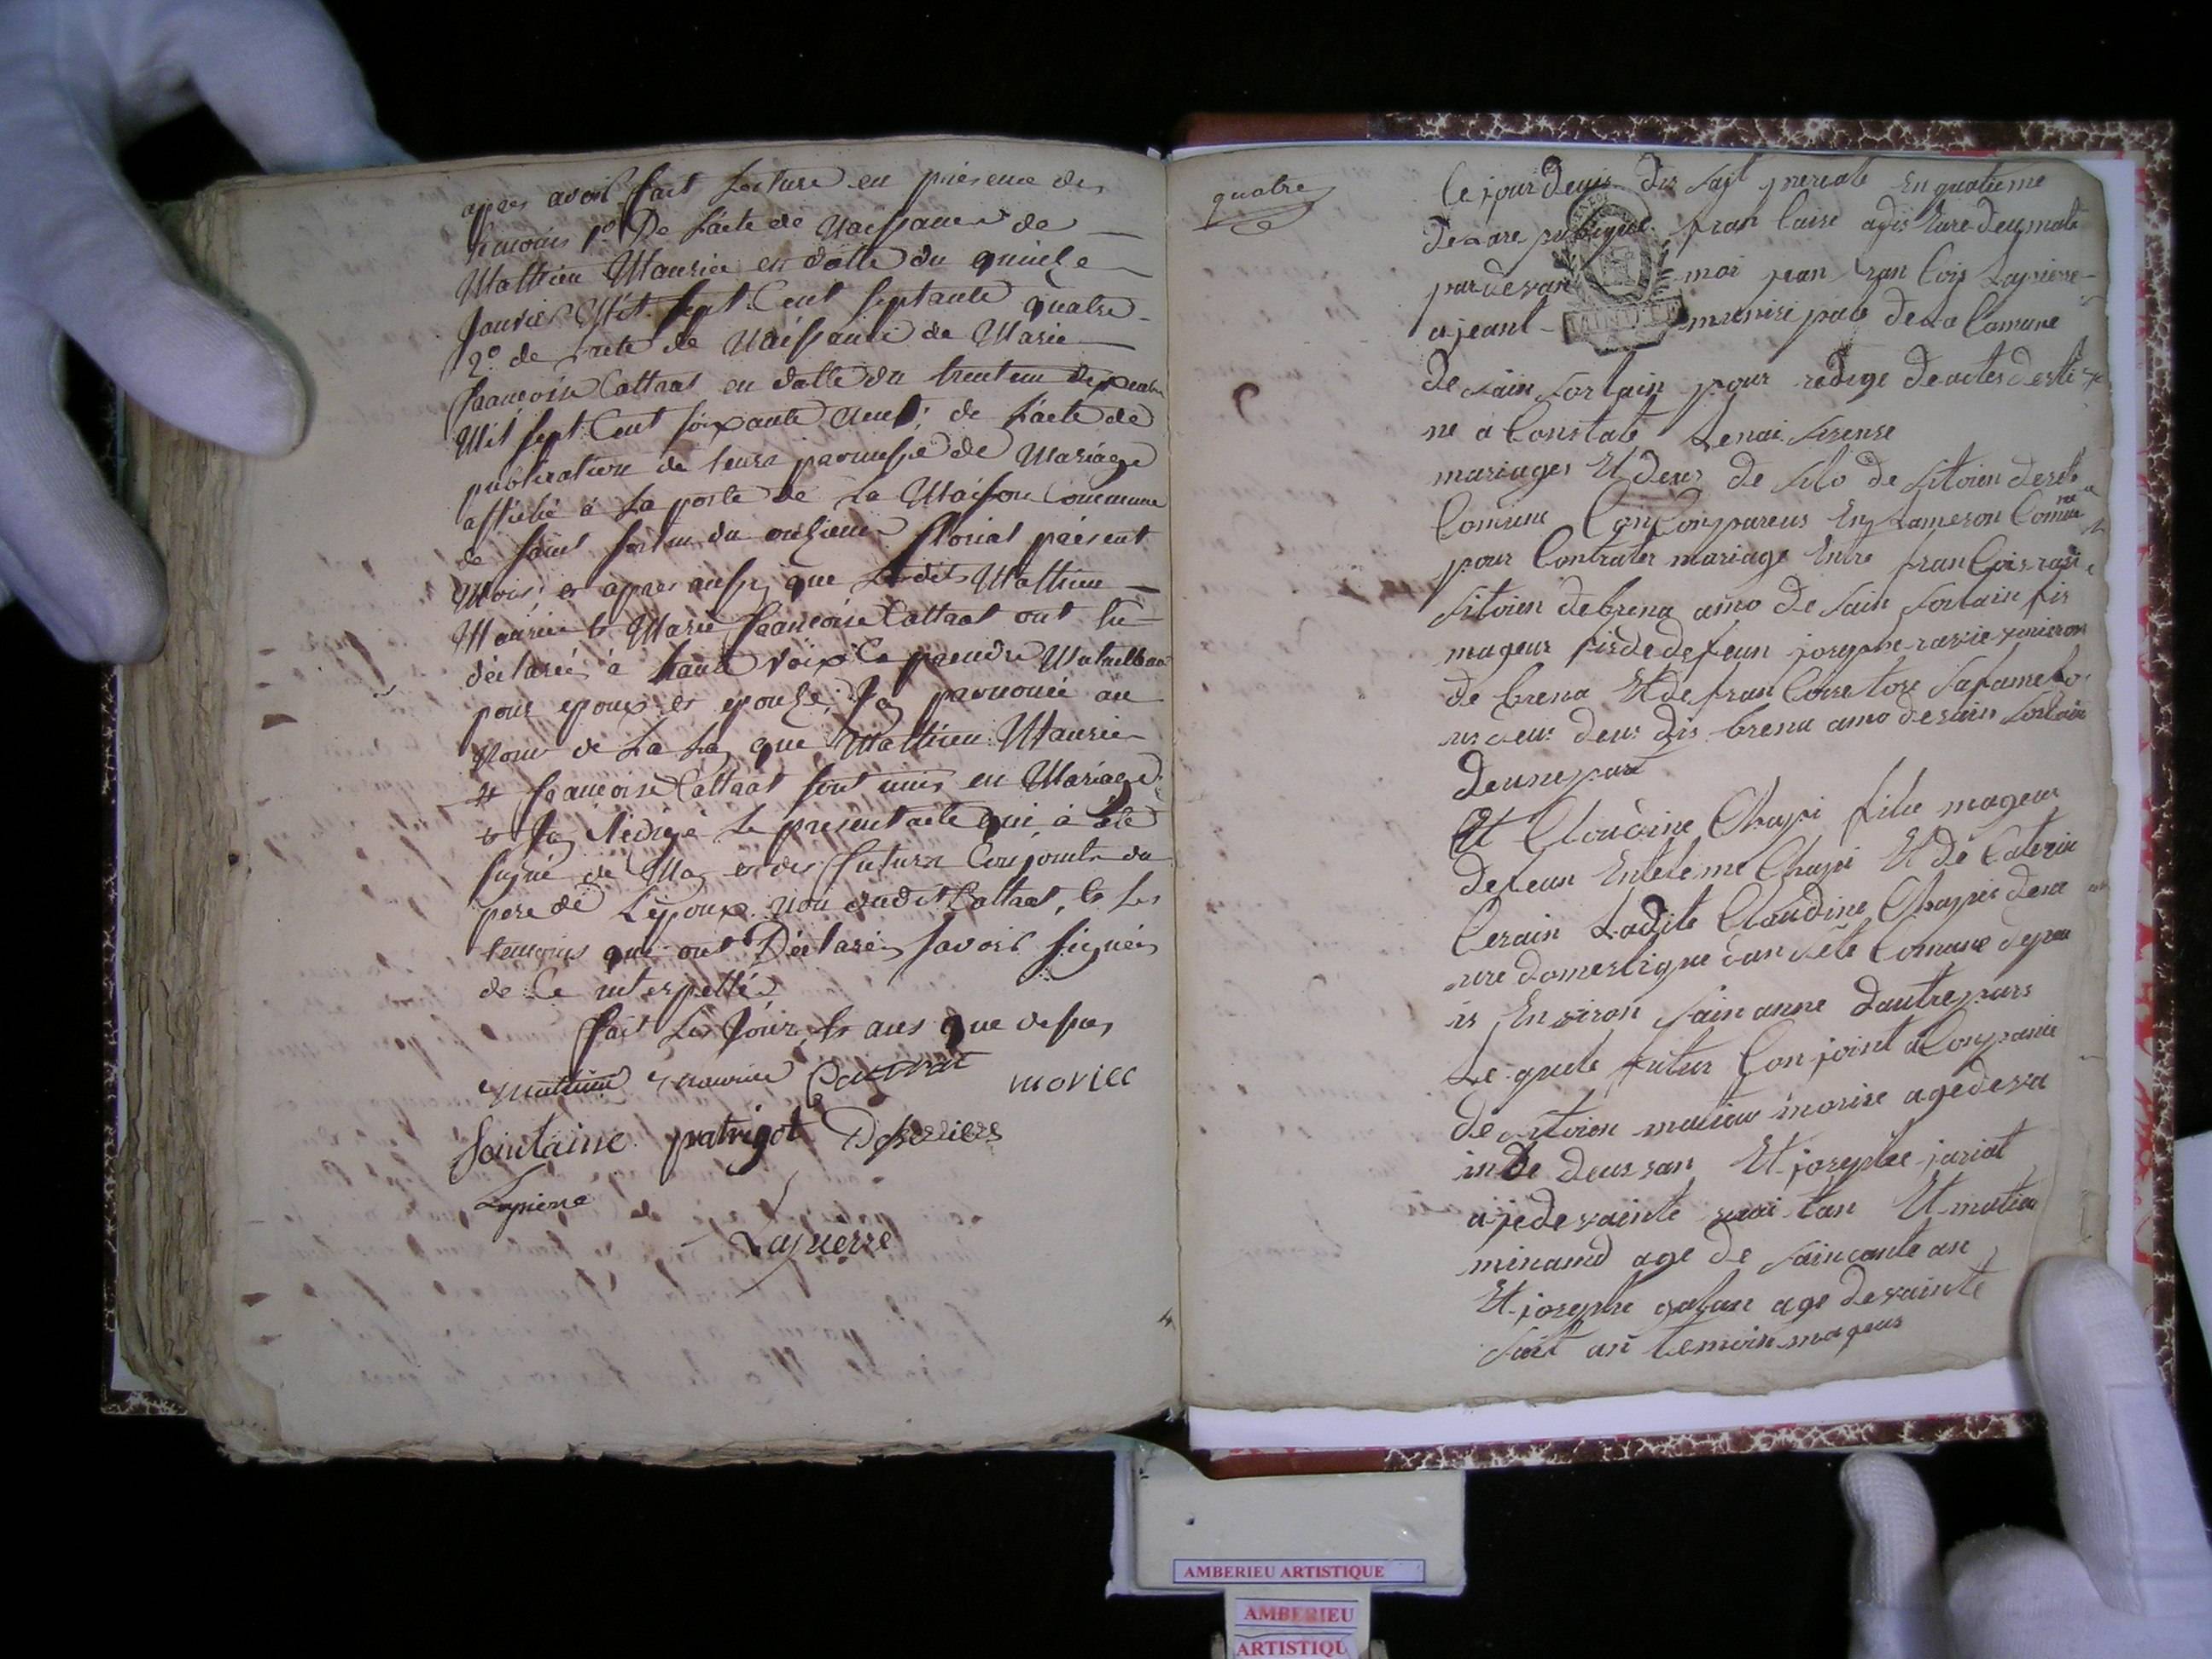 apres avoir fait Lecture en présence des
temoins 1º De L'acte de Naissance de
Mathieu Maurice en datte du quinze
Janvier Mil Sept Cent Septante quatre
2º de L'acte de Naissance de Marie
francoise Cattrat en datte du trente un
Mil Sept Cent soixante Neuf; de L'acte de
publication de leurs promesse de Mariage
affiché à La porte de La Maison Commune
de Saint Sortin du onzieme floréal présent
Mois; et apres aussy que Mathieu
Maurice & Marie francoise Cattrat ont Eu
déclarés à haute voix Ce prendre Mutuellement
pour epoux et epouse; J'ay prononcé au
Nom de La Loy que Mathieu Maurice
& francoise Cattrat sont unis en Mariage
& J'ay Rédigé Le présent acte qui à été
signé de Moy et des futurs Conjoints du
pere de L'époux non dudit Cattrat, & Les
temoins qui ont Déclarés savoir signés
de Ce interpellé
fait Les Jours & ans que dessus
mathieu maurice Cattrat morice
fontaine patrigot
Lapierre
Lapierre
quatre
le jourdeuis dis sajt precate En quatieme
de lare fran laise adis Eure deumate
par devan moi jean fran lois Lapierre
ajeant munisipale de La Comune
de sain sortain pour redige de actes desti
ne a Constate Lenai sense
mariages Et deses de sito de sitoien desete
Comune Con Conpareus En Lameson Comune
pour Contrater mariage Entre fran Cois ravi
sitoien de brena amo de sain sortain fis
mageur fis de defeun josephe ravie vineron
de brena Et de fran Coise tore safame
deus dis brena amo de sain sortain
de une part
Et Cloudine Chapi filie mageur
defeun Enteleme Chapi Et dé Caterin
Cerain Ladite Claudine Chapis deme
ure domestique dan sete Comune depeu
is Environ sain anne dautre pars
Le quele futur Conjoint aConpanié
de sitoien matieu morise age de va
in de deus san Et josephe jariat
aje de vainte tan Et matieu
minand age de saincante an
Et josephe galan age de vainte
sait an temoin mageur
AMBERIEU ARTISTIQUE
AMBERIEU
ARTISTIQU